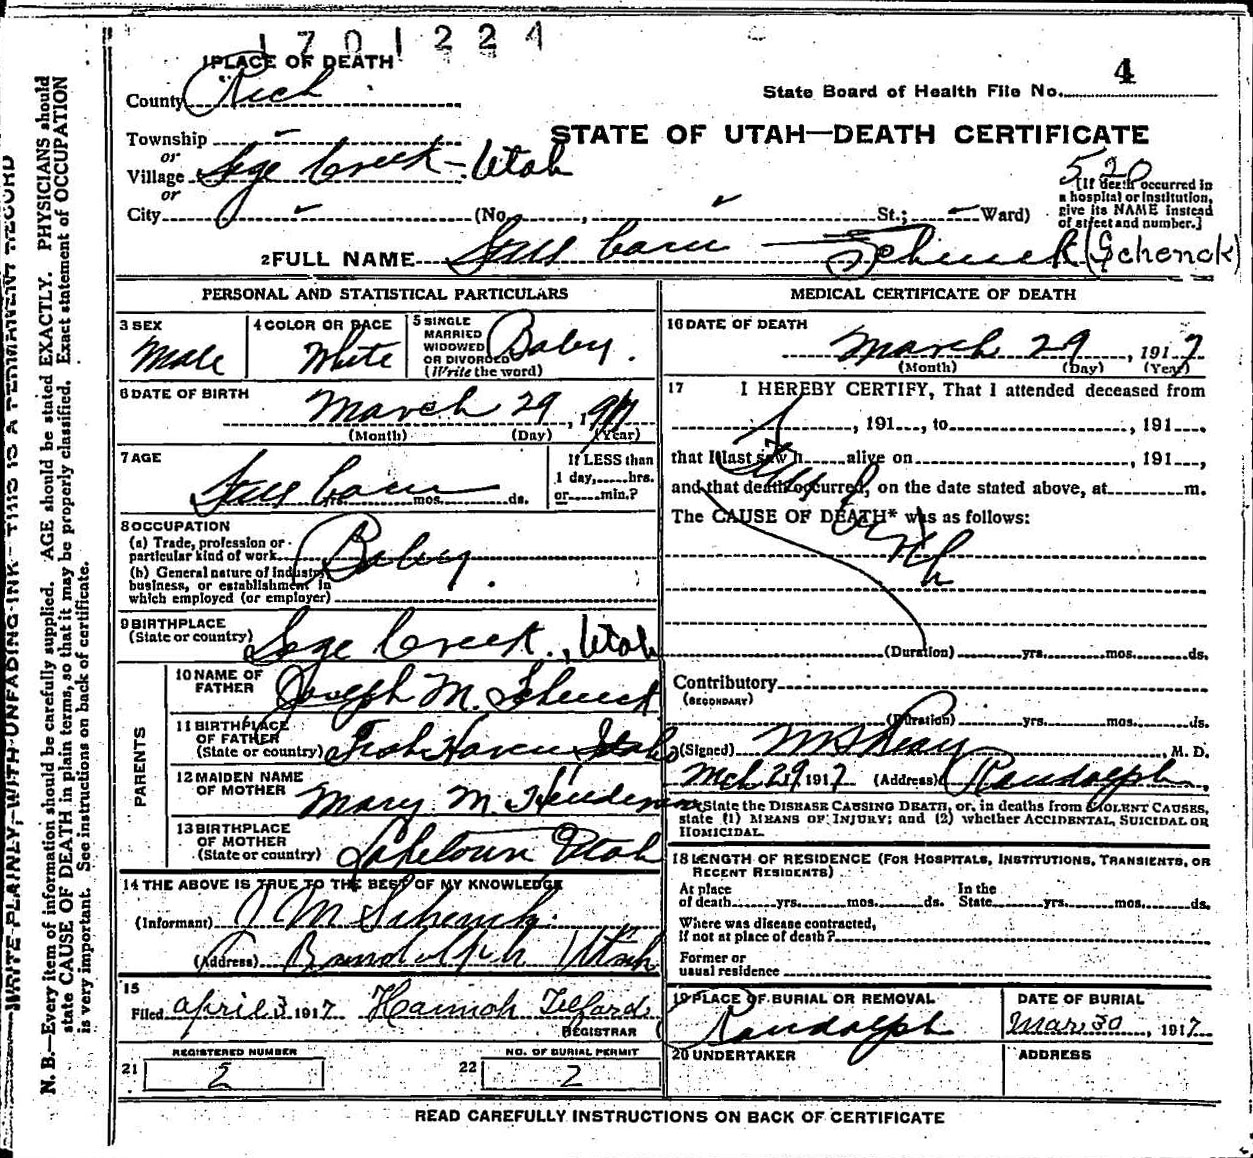 1701224
1 PLACE OF DEATH
4
County Rich
State Board of Health File No.
Township
STATE OF UTAH—DEATH CERTIFICATE
or
Village Sage Creek - Utah
520
or
[If death occurred in
a hospital or institution,
give its NAME instead
of street and number.]
City (No. , St.; Ward)
2 FULL NAME Still born Schenck (Schenck)
PERSONAL AND STATISTICAL PARTICULARS
3 SEX
Male
4 COLOR OR RACE
White
5 SINGLE
MARRIED
WIDOWED
OR DIVORCED
(Write the word)
Baby.
6 DATE OF BIRTH
March 29, 1917
(Month) (Day) (Year)
7 AGE
Still born
yrs. mos. ds.
If LESS than
1 day, hrs.
or min.?
8 OCCUPATION
(a) Trade, profession or
particular kind of work
Baby.
(b) General nature of industry,
business, or establishment in
which employed (or employer)
9 BIRTHPLACE
(State or country) Sage Creek., Utah
PARENTS
10 NAME OF
FATHER Joseph M. Schenck
11 BIRTHPLACE
OF FATHER
(State or country) Fish Haven Idaho
12 MAIDEN NAME
OF MOTHER Mary M.
13 BIRTHPLACE
OF MOTHER
(State or country) Laketown Utah
14 THE ABOVE IS TRUE TO THE BEST OF MY KNOWLEDGE
(Informant) J M Schenck.
(Address) Randolph Utah
15
Filed April 3 1917 Hannah Telford.
REGISTRAR
REGISTERED NUMBER
21 2
NO. OF BURIAL PERMIT
22 2
MEDICAL CERTIFICATE OF DEATH
16 DATE OF DEATH
March 29, 1917
(Month) (Day) (Year)
17 I HEREBY CERTIFY, That I attended deceased from
, 191 , to , 191 ,
that I last saw h alive on , 191 ,
and that death occurred, on the date stated above, at m.
The CAUSE OF DEATH* was as follows:
Still Birth
(Duration) yrs. mos. ds.
Contributory
(SECONDARY)
(Duration) yrs. mos. ds.
(Signed) M. D.
Mch 29, 1917 (Address) Randolph
*State the DISEASE CAUSING DEATH, or, in deaths from VIOLENT CAUSES,
state (1) MEANS OF INJURY; and (2) whether ACCIDENTAL, SUICIDAL OR
HOMICIDAL.
18 LENGTH OF RESIDENCE (FOR HOSPITALS, INSTITUTIONS, TRANSIENTS, OR
RECENT RESIDENTS)
At place
of death yrs. mos. ds.
In the
State yrs. mos. ds.
Where was disease contracted,
If not at place of death?
Former or
usual residence
19 PLACE OF BURIAL OR REMOVAL
Randolph
DATE OF BURIAL
Mar. 30, 1917
20 UNDERTAKER
ADDRESS
READ CAREFULLY INSTRUCTIONS ON BACK OF CERTIFICATE
WRITE PLAINLY, WITH UNFADING INK—THIS IS A PERMANENT RECORD
N. B.—Every item of information should be carefully supplied. AGE should be stated EXACTLY. PHYSICIANS should
state CAUSE OF DEATH in plain terms, so that it may be properly classified. Exact statement of OCCUPATION
is very important. See instructions on back of certificate.